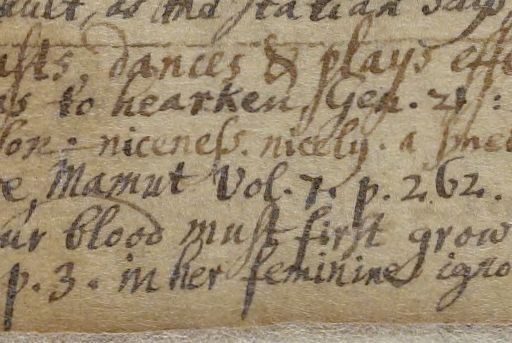 as the Italian says
asts, dances & plays effe
to hearken, Gen. 21:
niceness. nicely. a
Mamut Vol. 7. p. 262.
ur blood must first grow
p. 3. in her feminine igno